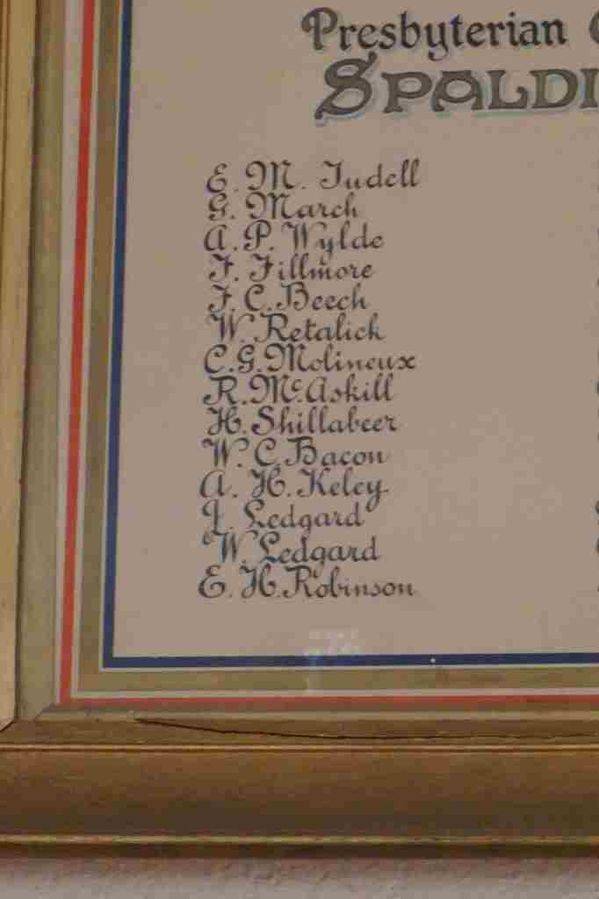 Presbyterian
SPALDI
E. M. Judell
G. March
A. P. Wylde
F. Fillmore
F. C. Beech
W. Retalick
C. G. Molineux
R. McAskill
H. Shillabeer
W. C. Bacon
A. H. Keley
J. Ledgard
W. Ledgard
E. H. Robinson